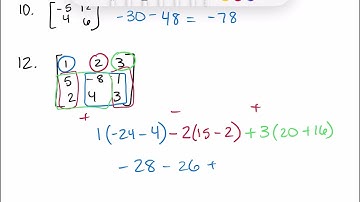 10. [-5 12 -30 - 48 = -78
4 6]
12. 1 2 3
5 -8 1
2 4 3
+ - +
1(-24-4) -2(15-2) +3(20+16)
-28 - 26 +